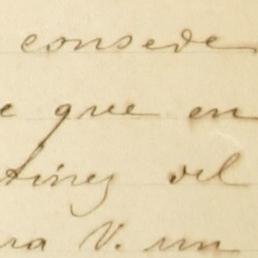 consede
e que en
tinez del
na V. un